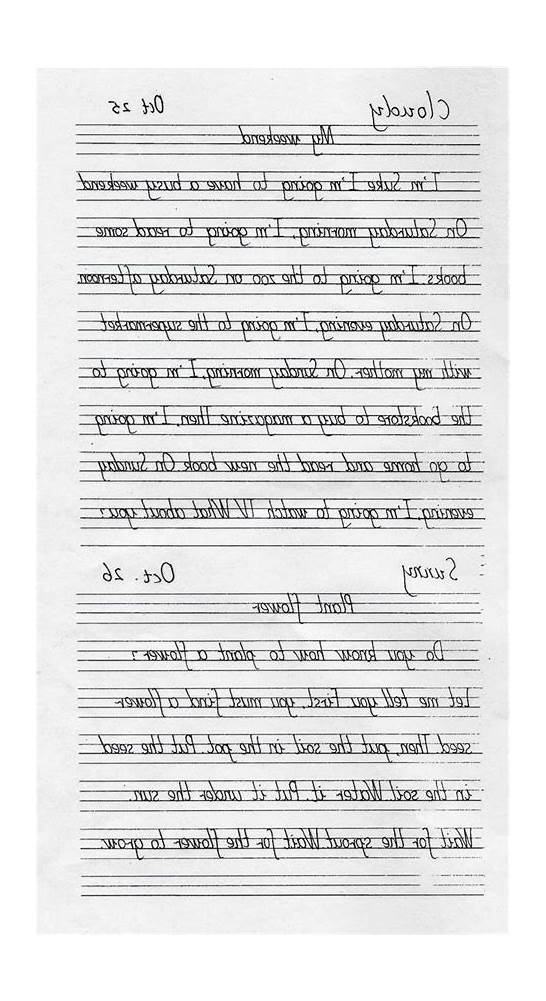 Cloudy Oct 25
My weekend
I'm Suke I'm going to have a busy weekend
On Saturday morning, I'm going to read some
books. I'm going to the zoo on Saturday afternoon
On Saturday evening, I'm going to the supermarket
with my mother. On Sunday morning, I'm going to
the bookstore to buy a magazine. Then, I'm going
to go home and read the new book. On Sunday
evening, I'm going to watch TV. What about you?
Sunny Oct. 26
Plant flower
Do you know how to plant a flower?
Let me tell you. First, you must find a flower
seed. Then, put the soil in the pot. Put the seed
in the soil. Water it. Put it under the sun.
Wait for the sprout. Wait for the flower to grow